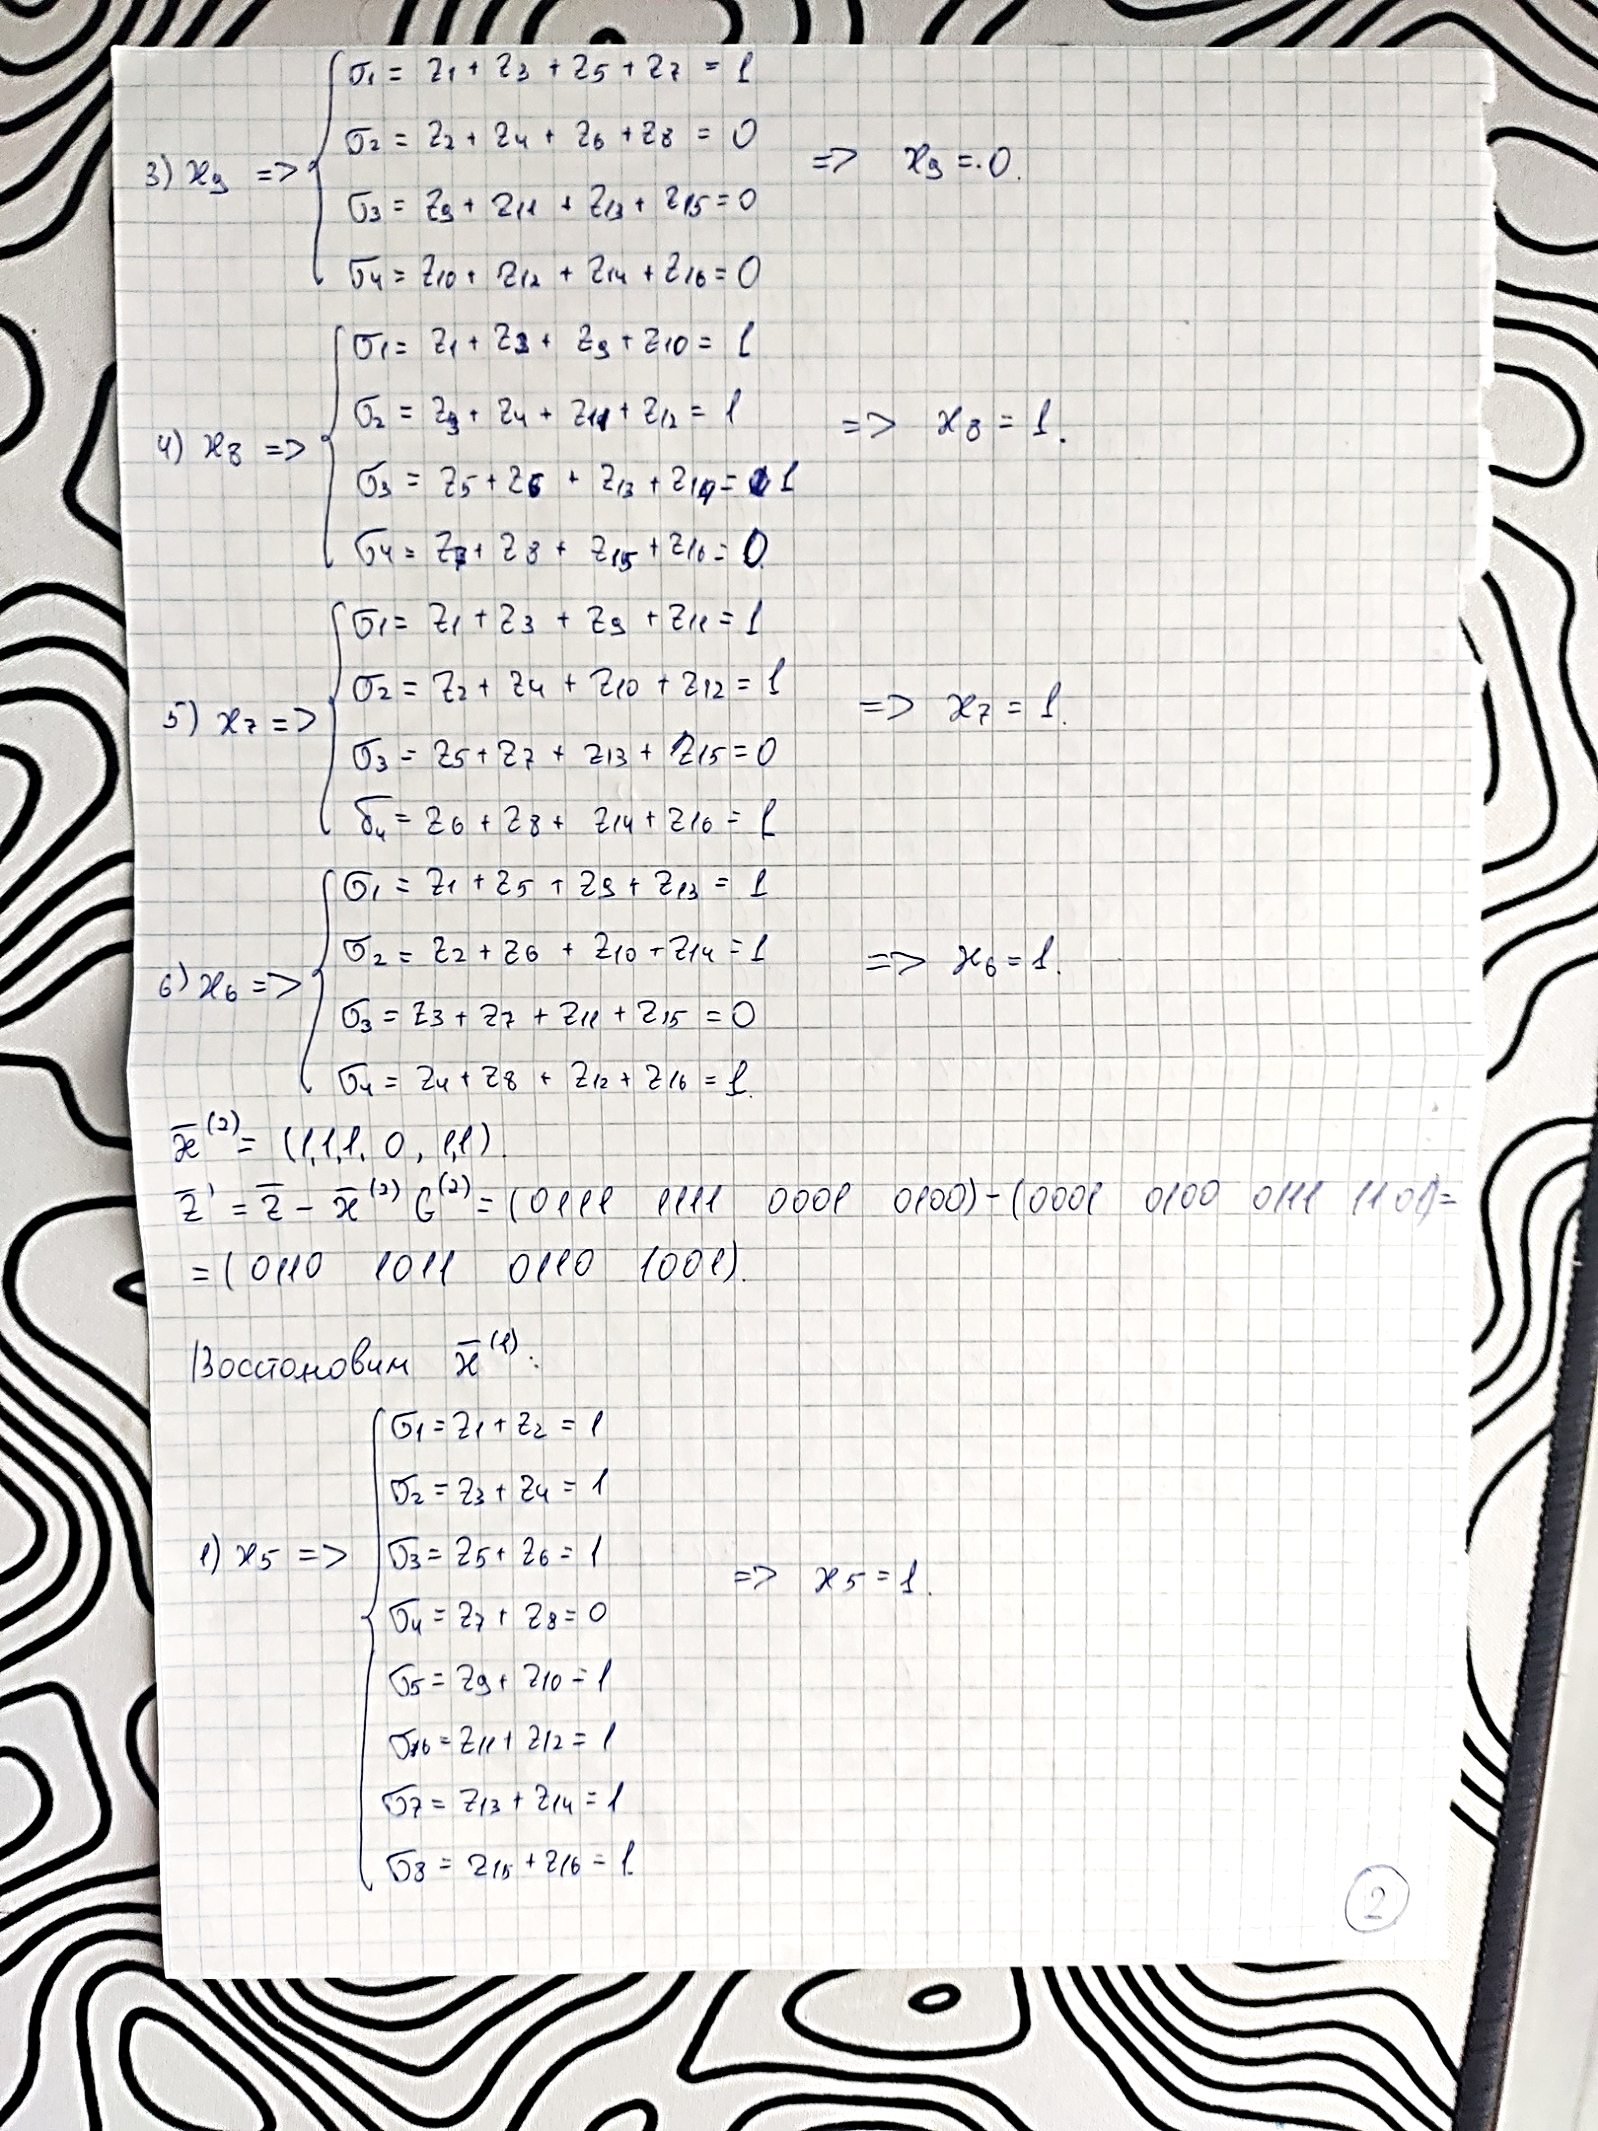 σ1 = z1 + z3 + z5 + z7 = 1
σ2 = z2 + z4 + z6 + z8 = 0
3) x9 => => x9 = 0.
σ3 = z9 + z11 + z13 + z15 = 0
σ4 = z10 + z12 + z14 + z16 = 0
σ1 = z1 + z2 + z9 + z10 = 1
σ2 = z3 + z4 + z11 + z12 = 1
4) x8 => => x8 = 1.
σ3 = z5 + z6 + z13 + z14 = 1
σ4 = z7 + z8 + z15 + z16 = 0
σ1 = z1 + z3 + z9 + z11 = 1
σ2 = z2 + z4 + z10 + z12 = 1
5) x7 => => x7 = 1.
σ3 = z5 + z7 + z13 + z15 = 0
σ4 = z6 + z8 + z14 + z16 = 1
σ1 = z1 + z5 + z9 + z13 = 1
σ2 = z2 + z6 + z10 + z14 = 1
6) x6 => => x6 = 1.
σ3 = z3 + z7 + z11 + z15 = 0
σ4 = z4 + z8 + z12 + z16 = 1
x̄⁽²⁾ = (1,1,1, 0, 1,1).
z̄' = z̄ − x̄⁽²⁾ G⁽²⁾ = (0111 1111 0001 0100) − (0001 0100 0111 1101) =
= (0110 1011 0110 1001).
Восстановим x̄⁽¹⁾:
σ1 = z1 + z2 = 1
σ2 = z3 + z4 = 1
1) x5 => σ3 = z5 + z6 = 1 => x5 = 1.
σ4 = z7 + z8 = 0
σ5 = z9 + z10 = 1
σ6 = z11 + z12 = 1
σ7 = z13 + z14 = 1
σ8 = z15 + z16 = 1
2